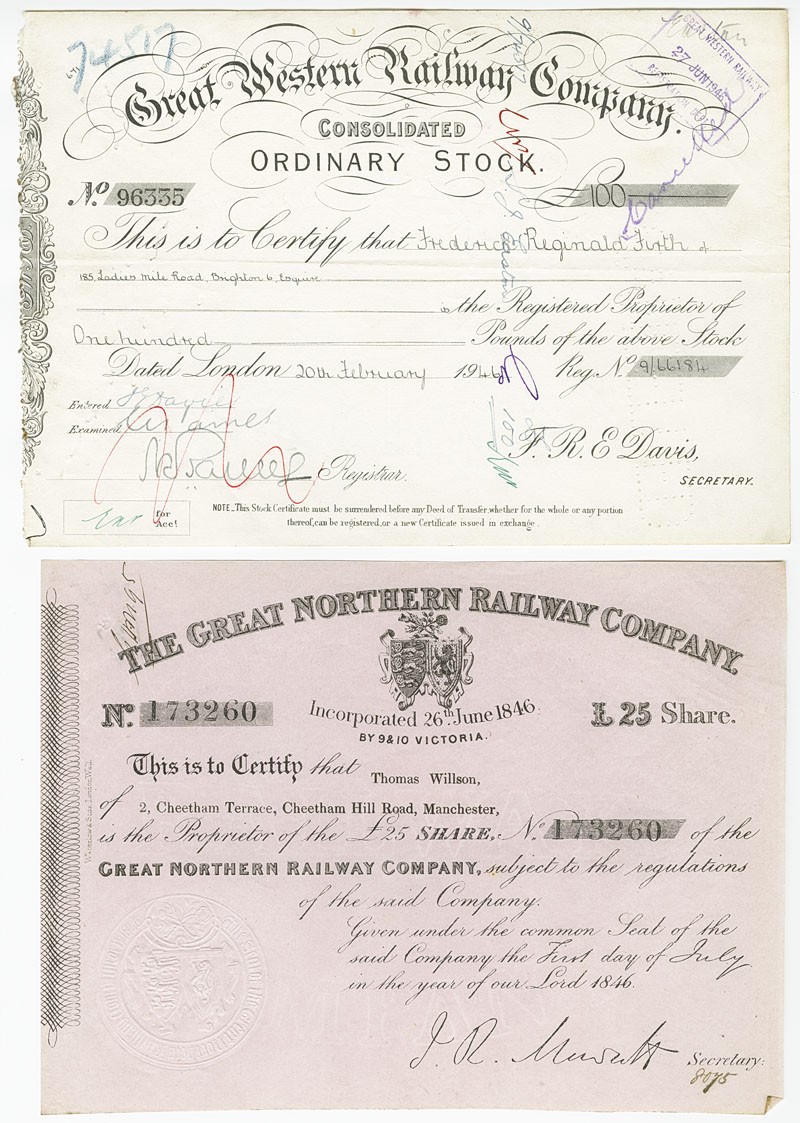 74517
Great Western Railway Company.
GREAT WESTERN RAILWAY
27 JUN 1946
Cancelled
CONSOLIDATED
ORDINARY STOCK.
No. 96335 £100
This is to Certify that Frederick Reginald Firth of
185, Ladies Mile Road, Brighton 6, Esquire
is the Registered Proprietor of
One hundred Pounds of the above Stock
Dated London 20th February 1946 Reg. No. 9/66184
Entered
Examined
F. R. E Davis,
Registrar.
SECRETARY.
for Acct
NOTE_This Stock Certificate must be surrendered before any Deed of Transfer, whether for the whole or any portion
thereof, can be registered, or a new Certificate issued in exchange.
THE GREAT NORTHERN RAILWAY COMPANY.
No. 173260 £25 Share.
Incorporated 26th June 1846.
BY 9 & 10 VICTORIA.
This is to Certify that Thomas Willson,
of 2, Cheetham Terrace, Cheetham Hill Road, Manchester,
is the Proprietor of the £25 SHARE, No. 173260 of the
GREAT NORTHERN RAILWAY COMPANY, subject to the regulations
of the said Company.
Given under the common Seal of the
said Company the First day of July
in the year of our Lord 1846.
J. R. Mowatt Secretary:
8075
Waterlow & Sons London Wall